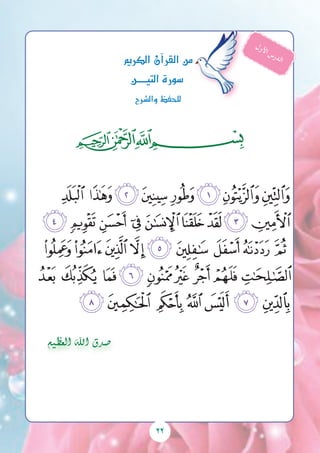 الدرس الأول
من القرآن الكريم
سورة التيـــن
للحفظ والشرح
بِسْمِ اللَّهِ الرَّحْمَٰنِ الرَّحِيمِ
وَٱلتِّينِ وَٱلزَّيْتُونِ ١ وَطُورِ سِينِينَ ٢ وَهَٰذَا ٱلْبَلَدِ
ٱلْأَمِينِ ٣ لَقَدْ خَلَقْنَا ٱلْإِنسَٰنَ فِىٓ أَحْسَنِ تَقْوِيمٍ ٤
ثُمَّ رَدَدْنَٰهُ أَسْفَلَ سَٰفِلِينَ ٥ إِلَّا ٱلَّذِينَ ءَامَنُوا۟ وَعَمِلُوا۟
ٱلصَّٰلِحَٰتِ فَلَهُمْ أَجْرٌ غَيْرُ مَمْنُونٍ ٦ فَمَا يُكَذِّبُكَ بَعْدُ
بِٱلدِّينِ ٧ أَلَيْسَ ٱللَّهُ بِأَحْكَمِ ٱلْحَٰكِمِينَ ٨
صدق الله العظيم
٢٢